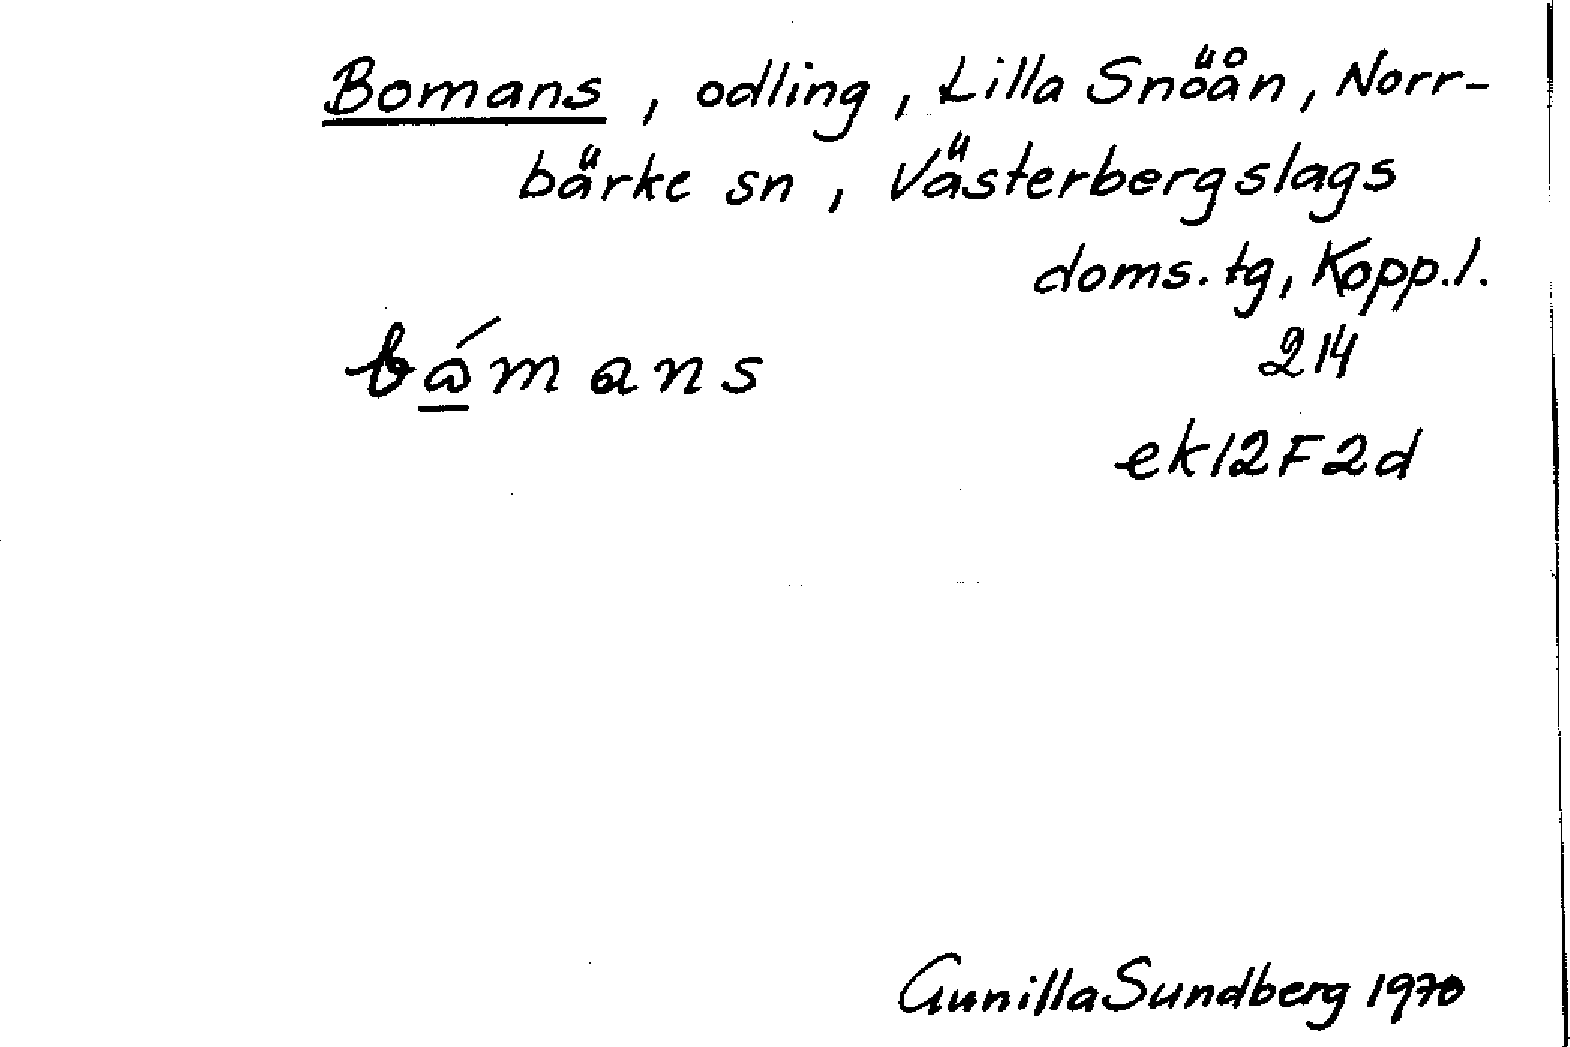 Bomans, odling, Lilla Snöån, Norr-
bärke sn, Västerbergslags
doms. tg, Kopp. l.
214
ek12F2d
Gunilla Sundberg 1970